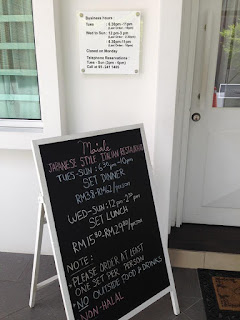 Business Hours :
Tues : 6.30pm-11pm
(Last Order - 10pm)
Wed to Sun : 12pm-3 pm
: 6.30pm-11pm
Closed on Monday
Telephone Reservations :
Tues - Sun (3pm - 6pm)
Maiale
JAPANESE STYLE ITALIAN RESTAURANT
TUES-SUN : 6:30pm-10pm
SET DINNER
RM38-RM62/person
WED-SUN: 12pm-2:30pm
SET LUNCH
RM15.80-RM29.80/person
NOTE:
*PLEASE ORDER AT LEAST
ONE SET PER PERSON
*NO OUTSIDE FOOD & DRINKS
*NON-HALAL